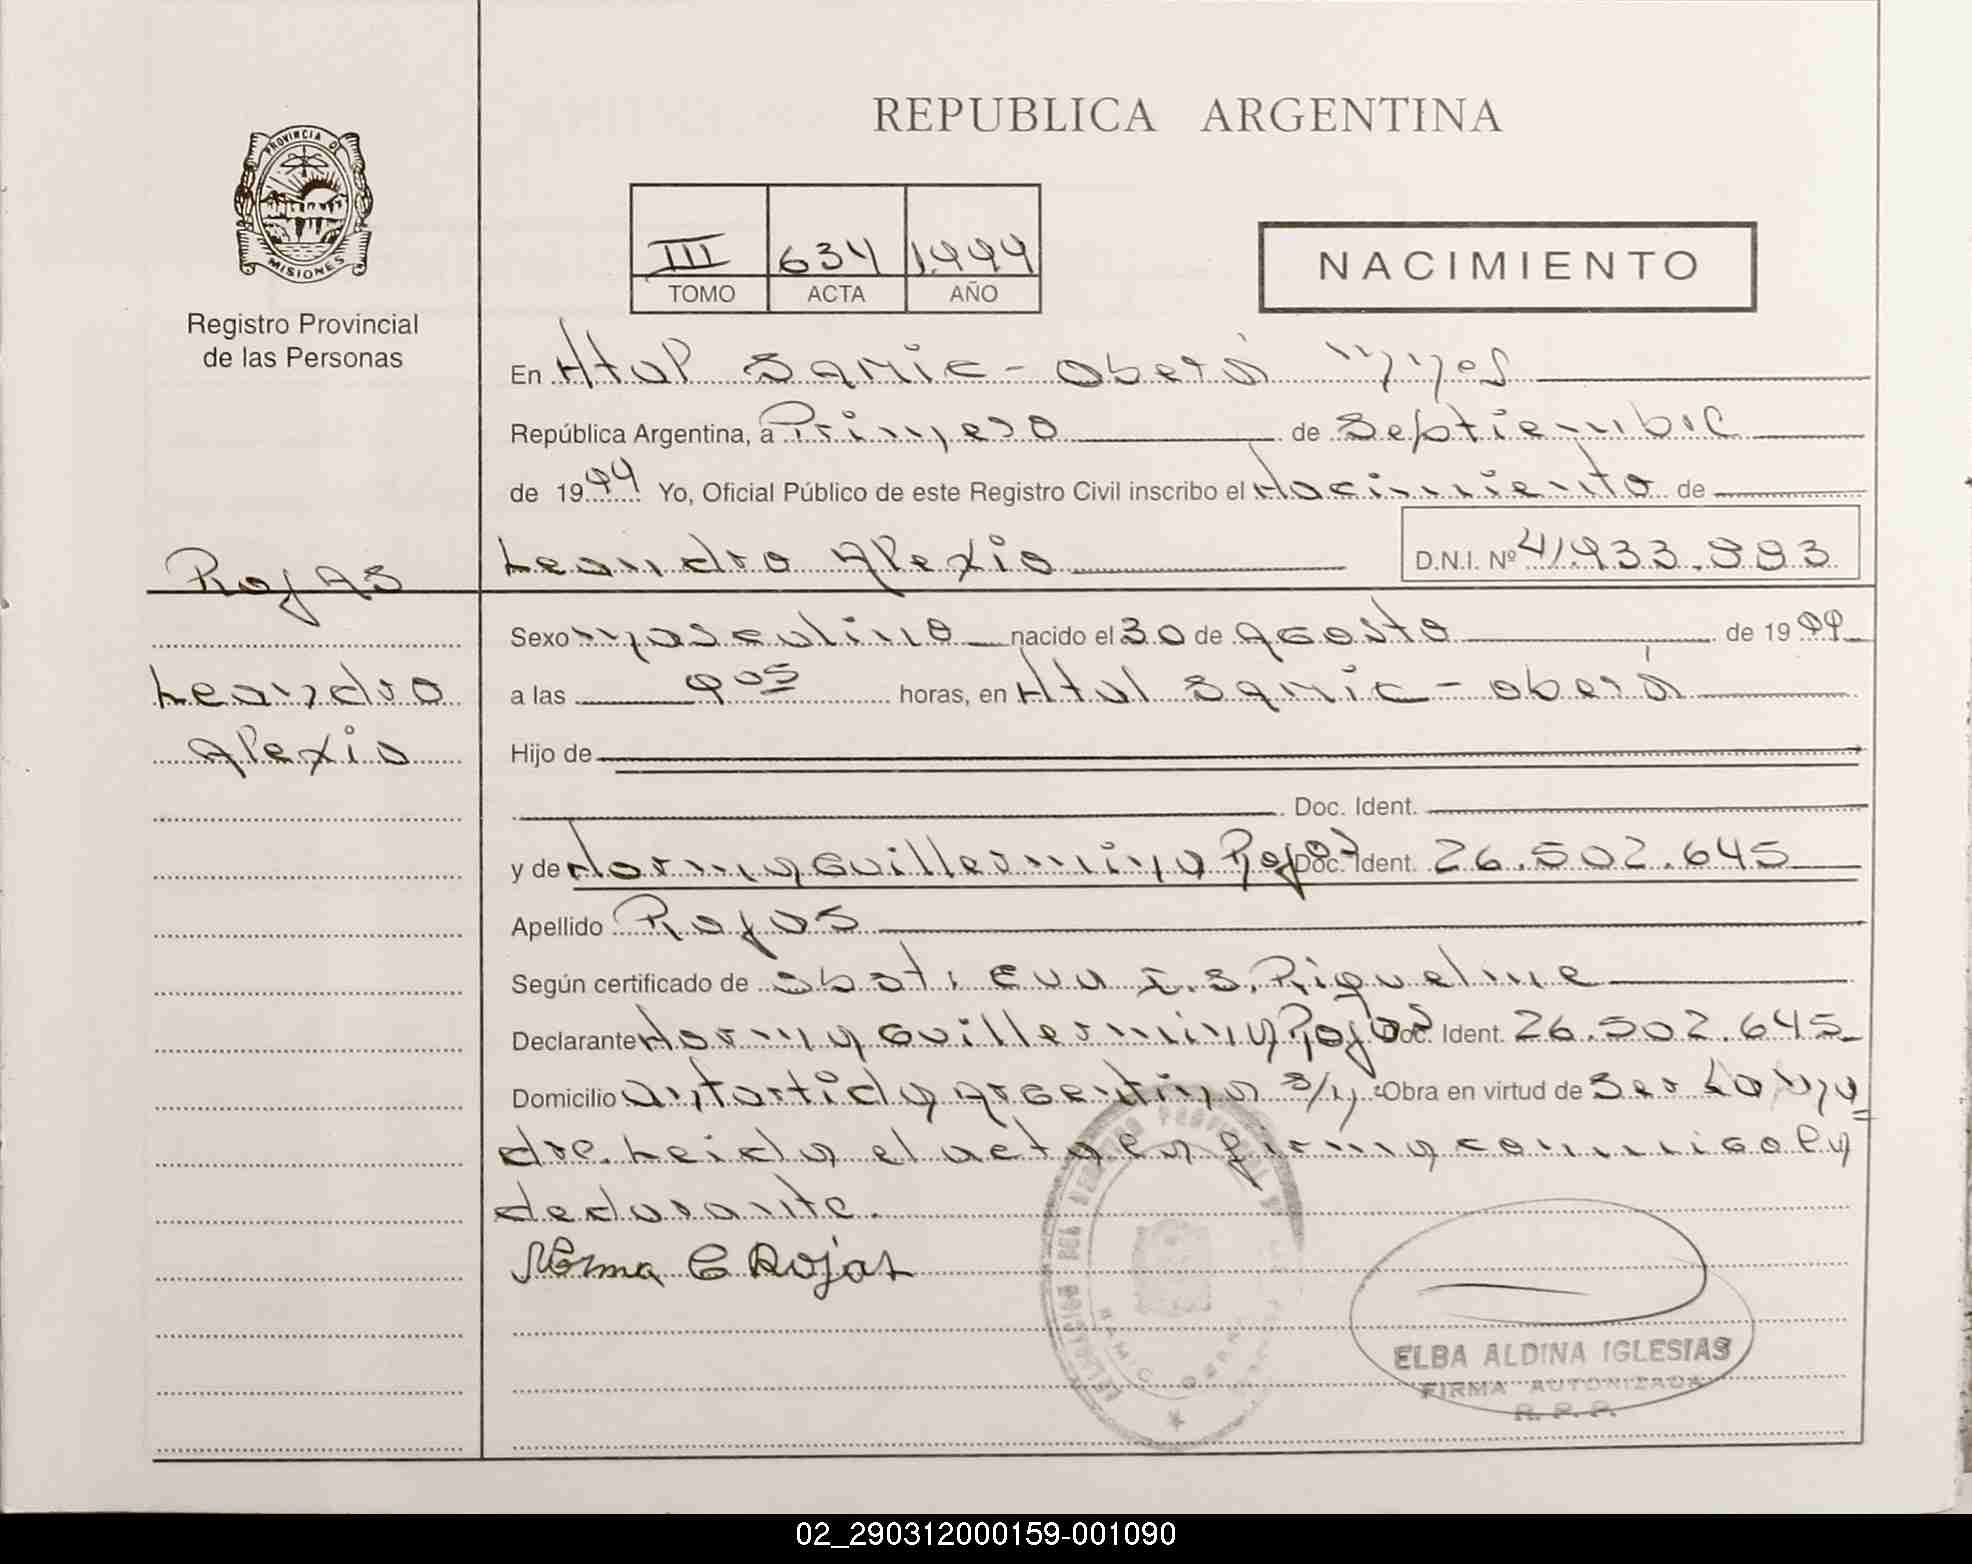 REPUBLICA ARGENTINA
PROVINCIA D
MISIONES
Registro Provincial
de las Personas
III 634 1.999
TOMO ACTA AÑO
NACIMIENTO
En Htal Samic - Oberá Mnes
República Argentina, a Primero de Septiembre
de 1999 Yo, Oficial Público de este Registro Civil inscribo el Nacimiento de
Rojas
Leandro Alexis
Leandro Alexis D.N.I. Nº 41.933.993
Sexo masculino nacido el 30 de Agosto de 1999
a las 9 05 horas, en Htal Samic - Oberá
Hijo de
Doc. Ident.
y de Norma Guillermina Rojas Doc. Ident. 26.502.645
Apellido Rojas
Según certificado de obst. Eva I. S. Riquelme
Declarante Norma Guillermina Rojas Doc. Ident. 26.502.645
Domicilio Antartida Argentina s/n Obra en virtud de Ser La Ma=
dre. Leida el acta la firma conmigo la
declarante.
Norma G Rojas
SAMIC OBERA
ELBA ALDINA IGLESIAS
FIRMA AUTORIZADA
R. P. P.
02_290312000159-001090